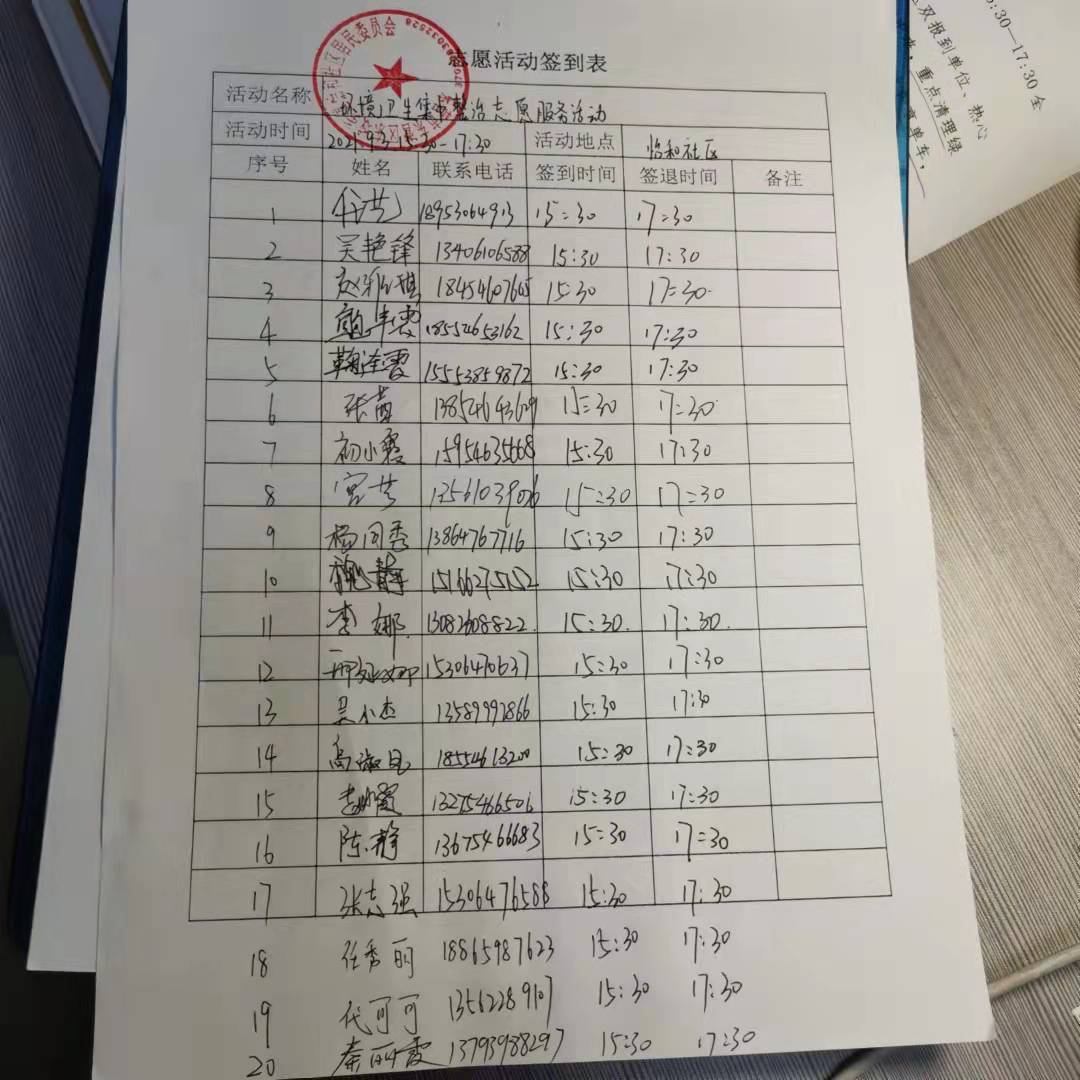 志愿活动签到表
活动名称 环境卫生集中整治志愿服务活动
活动时间 2021.9.3 15:30-17:30 活动地点 怡和社区
序号 姓名 联系电话 签到时间 签退时间 备注
1 18953064913 15:30 17:30
2 吴艳锋 13406106588 15:30 17:30
3 18454607645 15:30 17:30
4 18554653162 15:30 17:30
5 15553859872 15:30 17:30
6 13854643629 15:30 17:30
7 初小霞 15954635668 15:30 17:30
8 宫芸 13561039026 15:30 17:30
9 杨同秀 13864767716 15:30 17:30
10 魏静 15166275152 15:30 17:30
11 李娜 13082608822 15:30 17:30
12 15306470637 15:30 17:30
13 吴小杰 13589992866 15:30 17:30
14 18554613200 15:30 17:30
15 13275466506 15:30 17:30
16 陈静 13675466683 15:30 17:30
17 张志强 15306476588 15:30 17:30
18 任秀丽 18865987623 15:30 17:30
19 代可可 13562289107 15:30 17:30
20 秦丽霞 13793988297 15:30 17:30
5:30—17:30 全
双报到单位、热心
重点清理绿
单车，